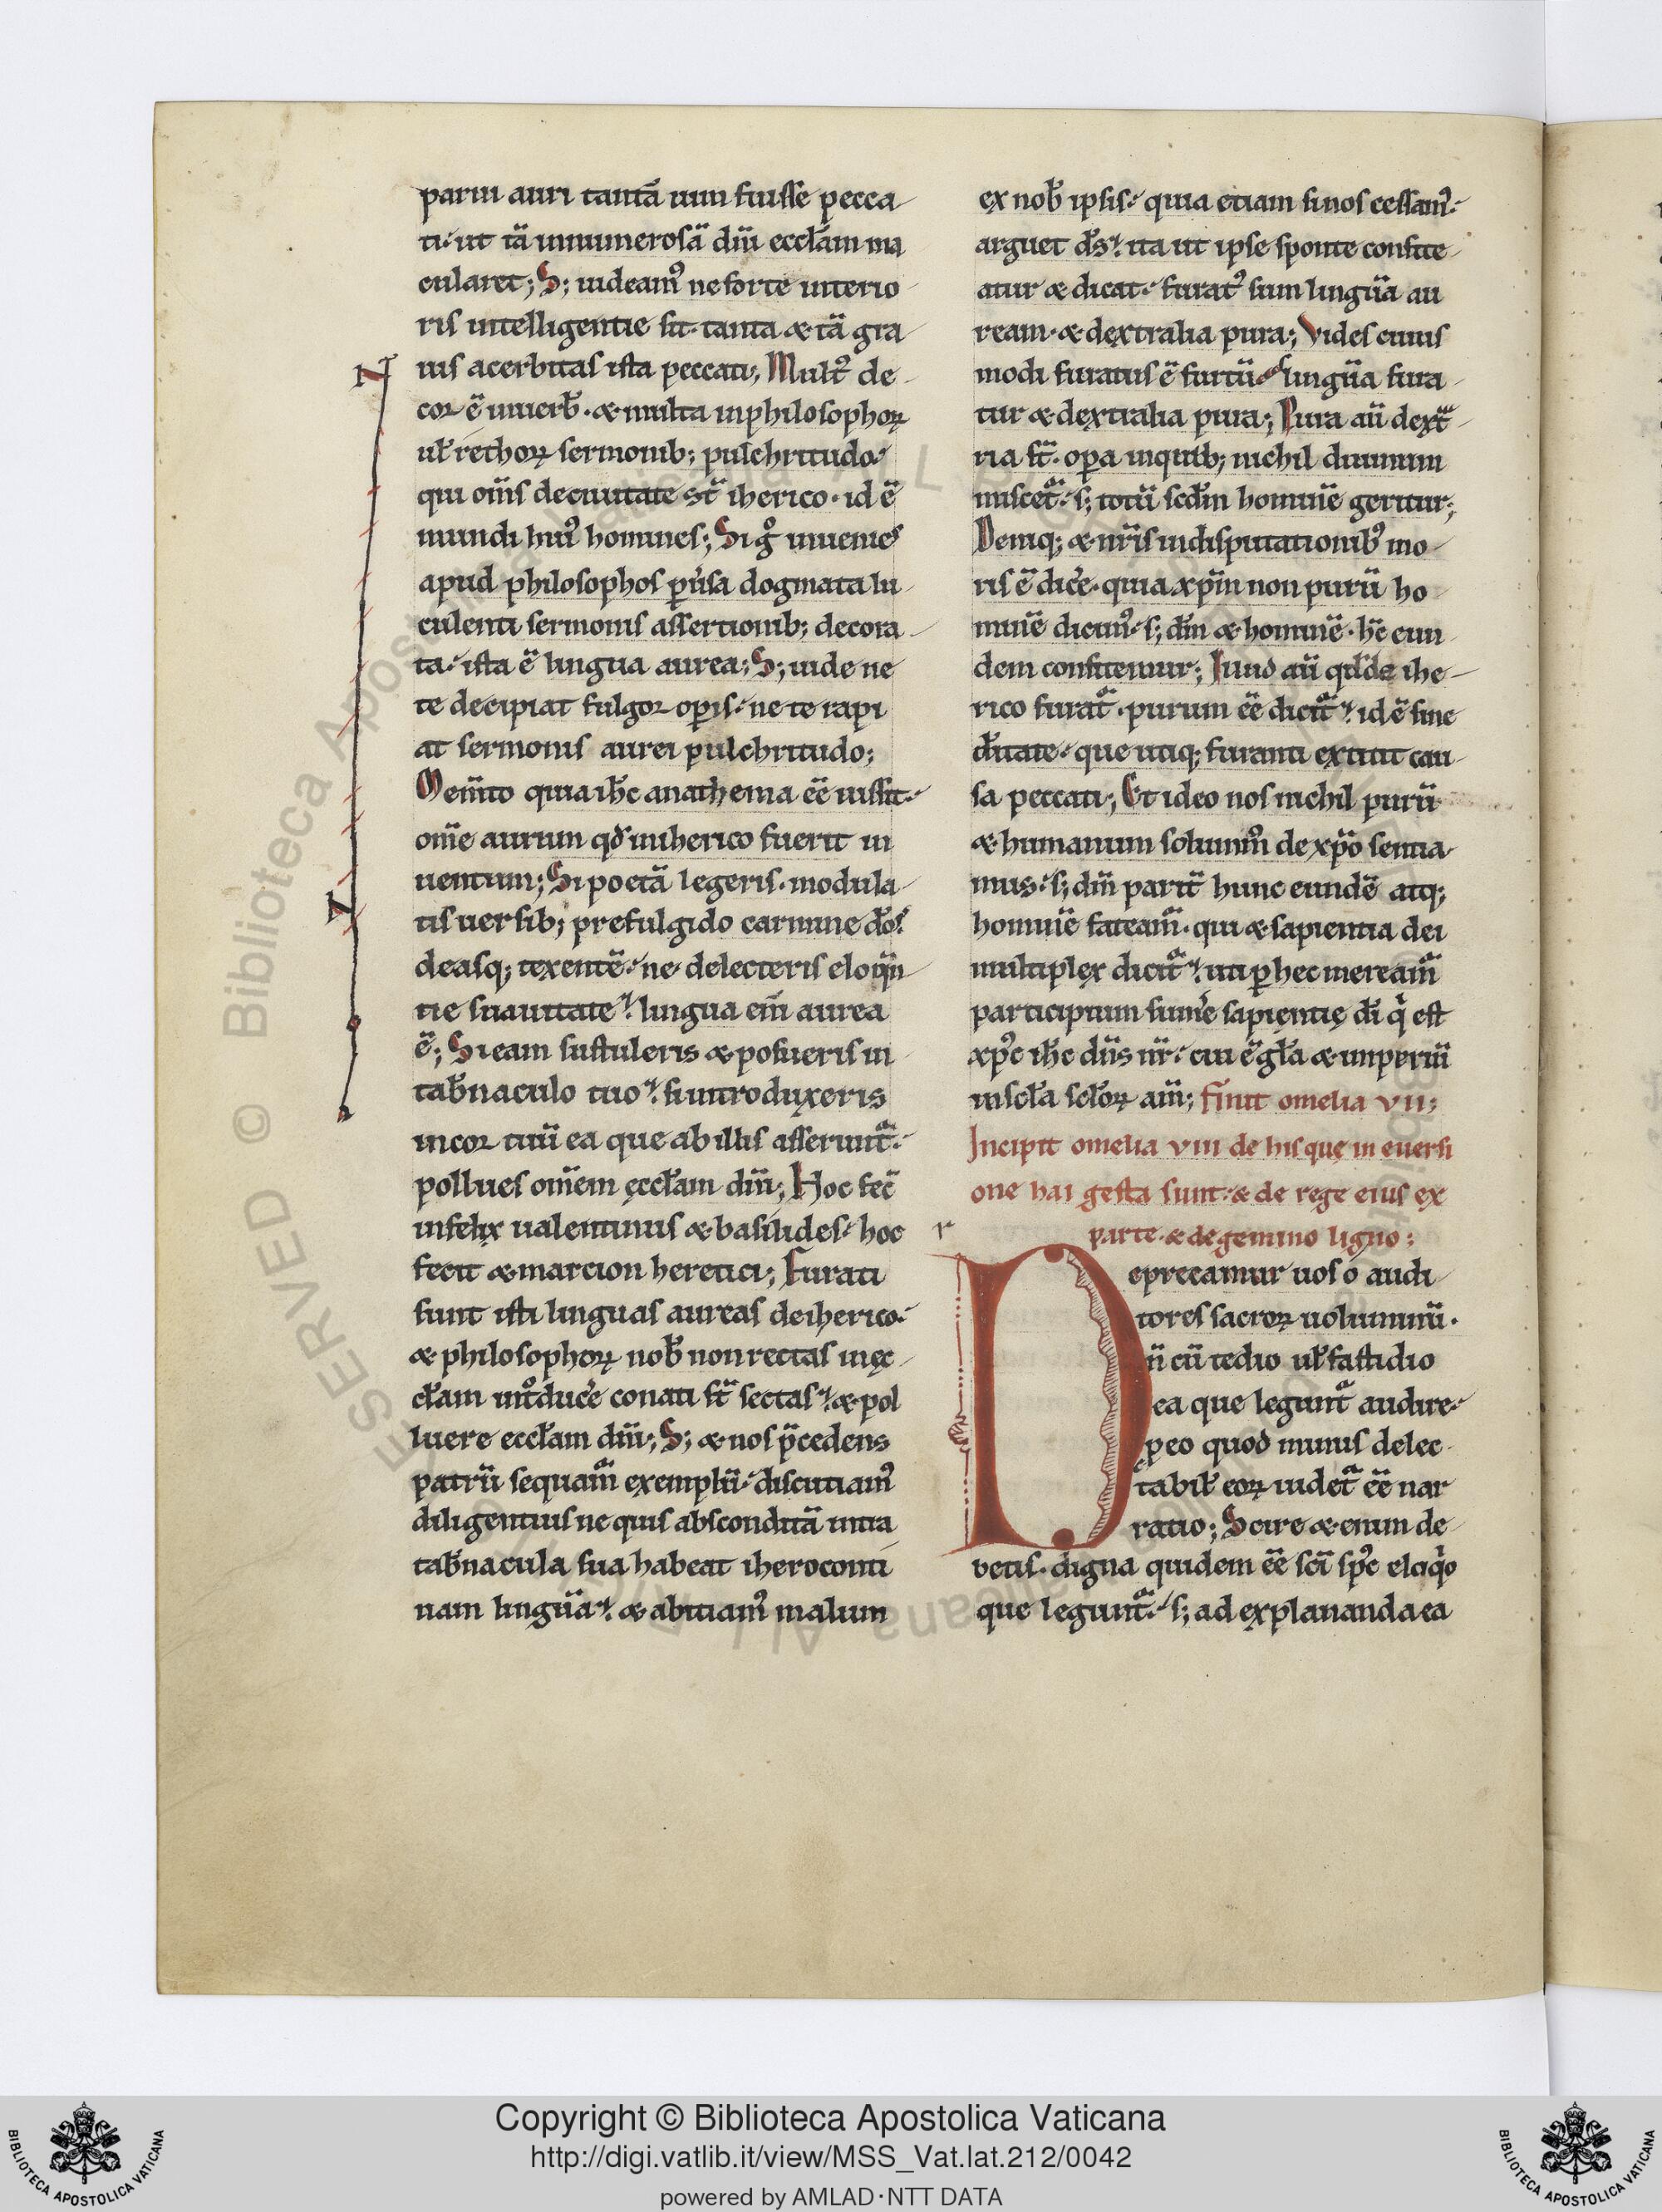 parui auri tantā uim fuisse pecca-
ti· ut tā innumerosā dñi eccl̄am ma
cularet; S; uideam᷒ ne forte interio-
ris intelligentie sit· tanta & tā gra-
uis acerbitas ista peccati; Mult᷒ de-
cor ē in uerb̄· & multa in philosophoꝝ
ul̄ rethoꝝ sermonib; pulchritudo·
qui om̄s de ciuitate st̄ iherico· id ē
mundi hui᷒ homines; Si gͦ inuenies
apud philosophos puͥsa dogmata lu-
culenti sermonis assertionib; decora-
ta· ista ē lingua aurea; S; uide ne
te decipiat fulgor opis· ne te rapi
at sermonis aurei pulchritudo;
Mem̄to quia ih̄c anathema eē iussit·
om̄e aurum qd̄ in iherico fuerit in
uentum; Si poetā legeris· modula-
tis uersib; prefulgido carmine d̄os
deasq; texentē· ne delecteris eloq̄n-
tie suauitate· lingua eni̅ aurea
ē; Si eam sustuleris & posueris in
tab̄naculo tuo· si introduxeris
in cor tuū ea que ab illis asserunt᷑·
pollues om̄em ęccl̄am dñi; Hoc fec̄
infelix ualentinus & basilides· hoc
fecit & marcion heretici; Furati
sunt isti linguas aureas de iherico·
& philosophoꝝ nob̄ non rectas in ęc-
cl̄am intͦduc̄e conati st̄ sectas· & pol
luere eccl̄am dñi; S; & nos p̄cedens
patrū sequam᷑ exemplū· discutiam᷒
diligentius ne quis absconditā intra
tab̄nacula sua habeat iheroconti
nam linguā· & abitiam᷒ malum
ex nob̄ ipsis· quia etiam si nos cessam᷒·
arguet d̄s· ita ut ipse sponte confite-
atur & dicat· furat᷒ sum linguā au
ream· & dextralia pura; Vides cuius
modi furatus ē furtū· linguā fura-
tur & dextralia pura; Pura aū dext-
ria st̄· opa in quib; nichil diuinum
miscet᷑· s; totū scd̄m hominē geritur;
Deniq; & nr̄is in disputationib᷒ mo-
ris ē dic̄e· quia xp̄m non purū ho
minē dicim᷒· s; dm̄ & hominē· hc̄ eun-
dem confitemur; Illud aū qd̄ de ihe-
rico furat᷑· purum eē dicit᷑· id ē sine
d̄itate· que utiq; furanti extitit cau-
sa peccati; Et ideo nos nichil purū
& humanum solumm̄ de xp̄o sentia-
mus· s; dm̄ parit̄ hunc eundē atq;
hominē fateam᷑· qui & sapientia dei
multiplex dicit᷑· uti p hec meream᷑
participium sum̄e sapientię di̅ qͥ est
xp̄c ih̄c dn̄s nr̄· cui ē gl̄a & imperiū
in scl̄a scl̄oꝝ am̄; finit omelia vii;
Incipit omelia viii de his quę in euersi
one hai gesta sunt· & de rege eius ex
parte· & de gemino ligno;
Deprecamur uos o audi-
tores sacroꝝ uoluminū·
n̄ cū tedio ul̄ fastidio
ea que legunt᷑ audire·
p eo quod minus delec-
tabil̄ eoꝝ uidet᷑ eē nar
ratio; Scire & enim de-
betis· digna quidem eē sc̄i sp̄c eloqͥo
que legunt᷑· s; ad explananda ea
Copyright © Biblioteca Apostolica Vaticana
http://digi.vatlib.it/view/MSS_Vat.lat.212/0042
powered by AMLAD·NTT DATA
BIBLIOTECA APOSTOLICA VATICANA
BIBLIOTECA APOSTOLICA VATICANA